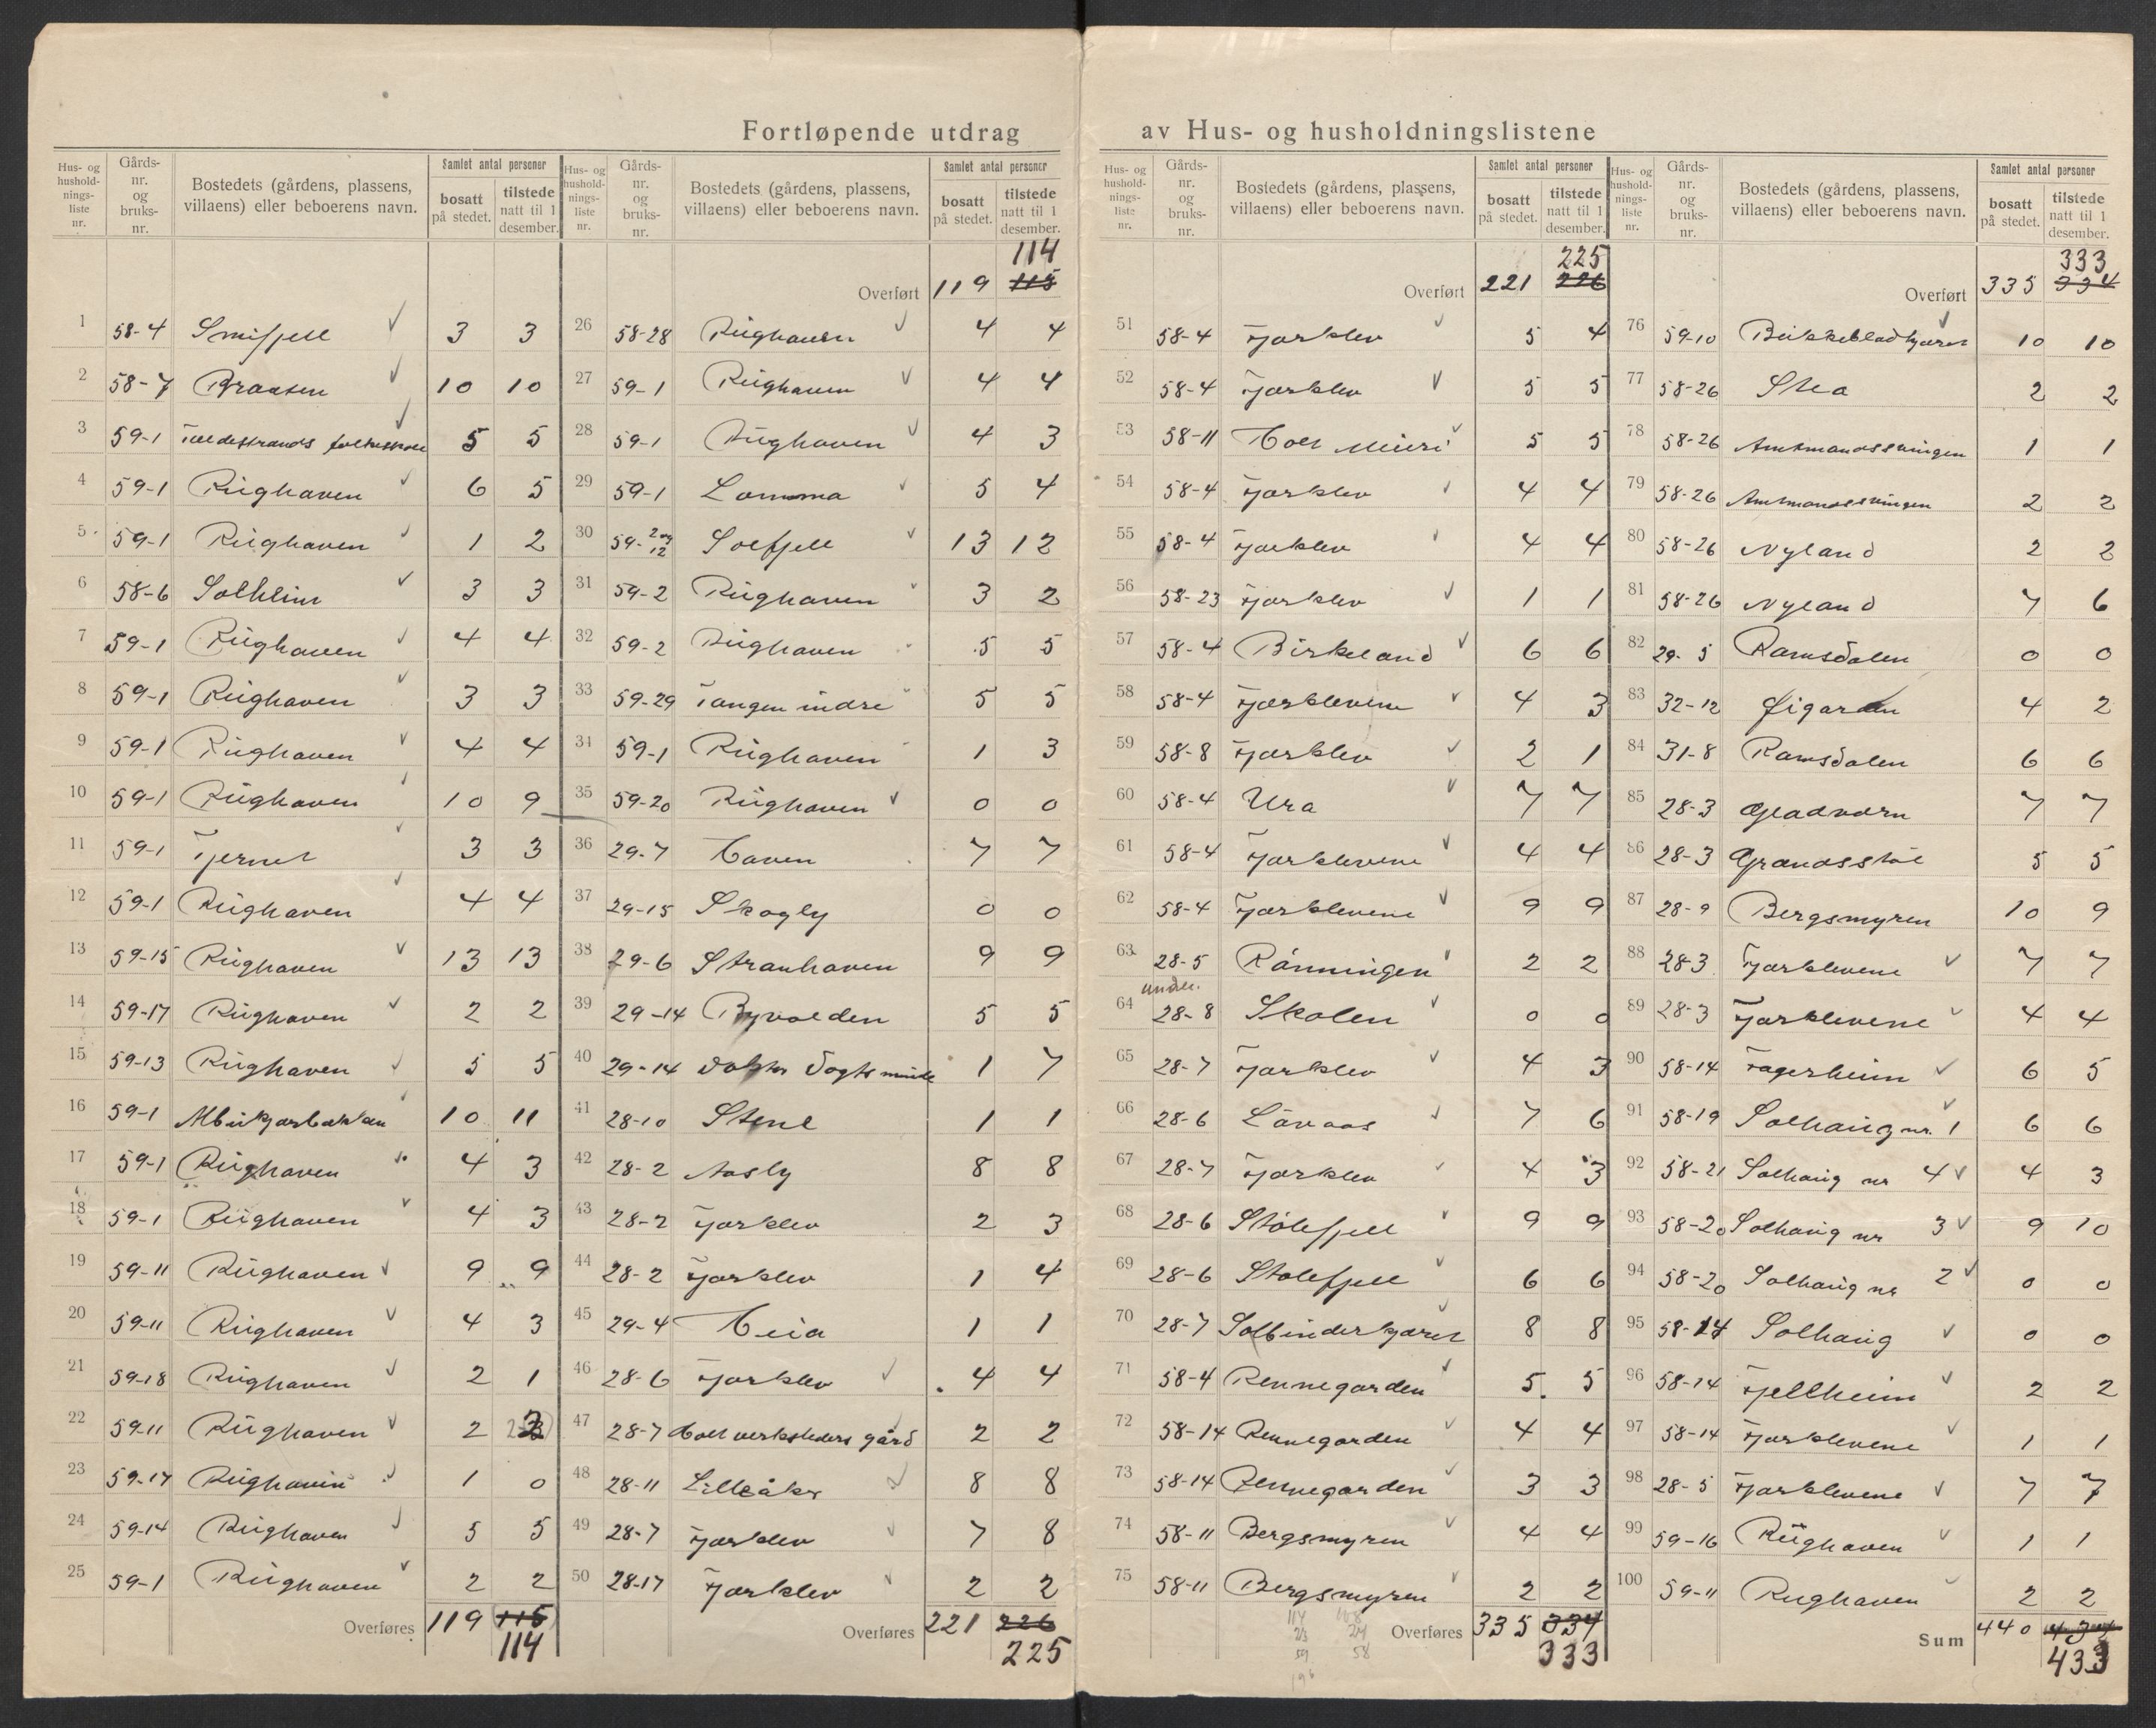 Fortløpende utdrag av Hus- og husholdningslistene
Hus- og husholdnings-liste nr. Gårds-nr. og bruks-nr. Bostedets (gårdens, plassens, villaens) eller beboerens navn. Samlet antal personer bosatt på stedet. tilstede natt til 1 desember.
1 58-4 Smifjell 3 3
2 58-7 Braaten 10 10
3 59-1 folkeskole 5 5
4 59-1 Rüghaven 6 5
5 59-1 Rüghaven 1 2
6 58-6 Solheim 3 3
7 59-1 Rüghaven 4 4
8 59-1 Rüghaven 3 3
9 59-1 Rüghaven 4 4
10 59-1 Rüghaven 10 9
11 59-1 Tjernet 3 3
12 59-1 Rüghaven 4 4
13 59-15 Rüghaven 13 13
14 59-17 Rüghaven 2 2
15 59-13 Rüghaven 5 5
16 59-1 10 11
17 59-1 Rüghaven 4 3
18 59-1 Rüghaven 4 3
19 59-11 Rüghaven 9 9
20 59-11 Rüghaven 4 3
21 59-18 Rüghaven 2 1
22 59-11 Rüghaven 2 2
23 59-17 Rüghaven 1 0
24 59-14 Rüghaven 5 5
25 59-1 Rüghaven 2 2
Overføres 119 115
114
Hus- og husholdnings-liste nr. Gårds-nr. og bruks-nr. Bostedets (gårdens, plassens, villaens) eller beboerens navn. Samlet antal personer bosatt på stedet. tilstede natt til 1 desember.
114
Overført 119 115
26 58-28 Rüghaven 4 4
27 59-1 Rüghaven 4 4
28 59-1 Rüghaven 4 3
29 59-1 Lomma 5 4
30 59-2 og 12 Solfjell 13 12
31 59-2 Rüghaven 3 2
32 59-2 Rüghaven 5 5
33 59-29 Tangen indre 5 5
34 59-1 Rüghaven 1 3
35 59-20 Rüghaven 0 0
36 29-7 Haven 7 7
37 29-15 Skogly 0 0
38 29-6 Strauhaven 9 9
39 29-14 Byvolden 5 5
40 29-14 Doktor Vogts minde 1 7
41 28-10 Stene 1 1
42 28-2 Aasly 8 8
43 28-2 Fjærklev 2 3
44 28-2 Fjærklev 1 4
45 29-4 Heia 1 1
46 28-6 Fjærklev 4 4
47 28-7 Holt verksteders gård 2 2
48 28-11 Lilleåker 8 8
49 28-7 Fjærklev 7 8
50 28-17 Fjærklev 2 2
Overføres 221 226
225
Hus- og husholdnings-liste nr. Gårds-nr. og bruks-nr. Bostedets (gårdens, plassens, villaens) eller beboerens navn. Samlet antal personer bosatt på stedet. tilstede natt til 1 desember.
225
Overført 221 226
51 58-4 Fjærklev 5 4
52 58-4 Fjærklev 5 5
53 58-11 Holt Meieri 5 5
54 58-4 Fjærklev 4 4
55 58-4 Fjærklev 4 4
56 58-23 Fjærklev 1 1
57 58-4 Birkeland 6 6
58 58-4 Fjærklevene 4 3
59 58-8 Fjærklev 2 1
60 58-4 Ura 7 7
61 58-4 Fjærklevene 4 4
62 58-4 Fjærklevene 9 9
63 28-5 Rönningen 2 2
64 under. 28-8 Skolen 0 0
65 28-7 Fjærklev 4 3
66 28-6 Lövaas 7 6
67 28-7 Fjærklev 4 3
68 28-6 Stölefjell 9 9
69 28-6 Stölefjell 6 6
70 28-7 8 8
71 58-4 Rennegarden 5 5
72 58-14 Rennegarden 4 4
73 58-14 Rennegarden 3 3
74 58-11 Bergsmyren 4 4
75 58-11 Bergsmyren 2 2
Overføres 335 334
333
Hus- og husholdnings-liste nr. Gårds-nr. og bruks-nr. Bostedets (gårdens, plassens, villaens) eller beboerens navn. Samlet antal personer bosatt på stedet. tilstede natt til 1 desember.
333
Overført 335 334
76 59-10 Bukkebladkjæret 10 10
77 58-26 Stea 2 2
78 58-26 Amtmandssvingen 1 1
79 58-26 Amtmandssvingen 2 2
80 58-26 Nyland 2 2
81 58-26 Nyland 7 6
82 29-5 Ramsdalen 0 0
83 32-12 Øigarden 4 2
84 31-8 Ramsdalen 6 6
85 28-3 Gladvorn 7 7
86 28-3 Grandsstøl 5 5
87 28-9 Bergsmyren 10 9
88 28-3 Fjærklevene 7 7
89 28-3 Fjærklevene 4 4
90 58-14 Fagerheim 6 5
91 58-19 Solhaug nr. 1 6 6
92 58-21 Solhaug nr 4 4 3
93 58-20 Solhaug nr 3 9 10
94 58-20 Solhaug nr 2 0 0
95 58-14 Solhaug 0 0
96 58-14 Fjellheim 2 2
97 58-14 Fjærklevene 1 1
98 28-5 Fjærklevene 7 7
99 59-16 Rüghaven 1 1
100 59-11 Rughaven 2 2
Sum 440 434
433